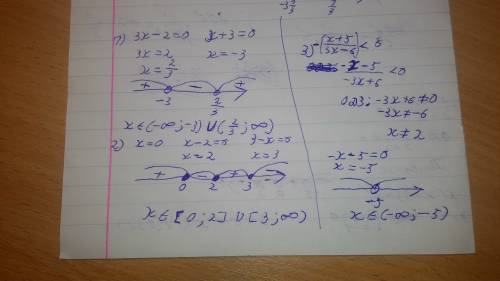 1) 3x-2=0 x+3=0
3x=2 x=-3
x=2/3
+ - +
-3 2/3
x∈(-∞;-3)∪(2/3;∞)
2) x=0 x-2=0 3-x=0
x=2 x=3
+ - + -
0 2 3
x∈[0;2]∪[3;∞)
3) -(x+5)/(3x-6)<0
-x-5
-3x+6 <0
ОДЗ: -3x+6≠0
-3x≠-6
x≠2
-x-5=0
x=-5
-5
x∈(-∞;-5)